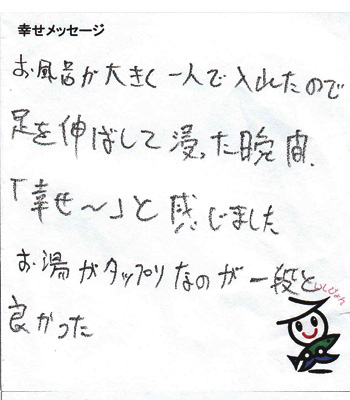 幸せメッセージ
お風呂が大きく一人で入れたので
足を伸ばして浸った晩間、
「幸せ～」と感じました
お湯がタップリなのが一段と
良かった